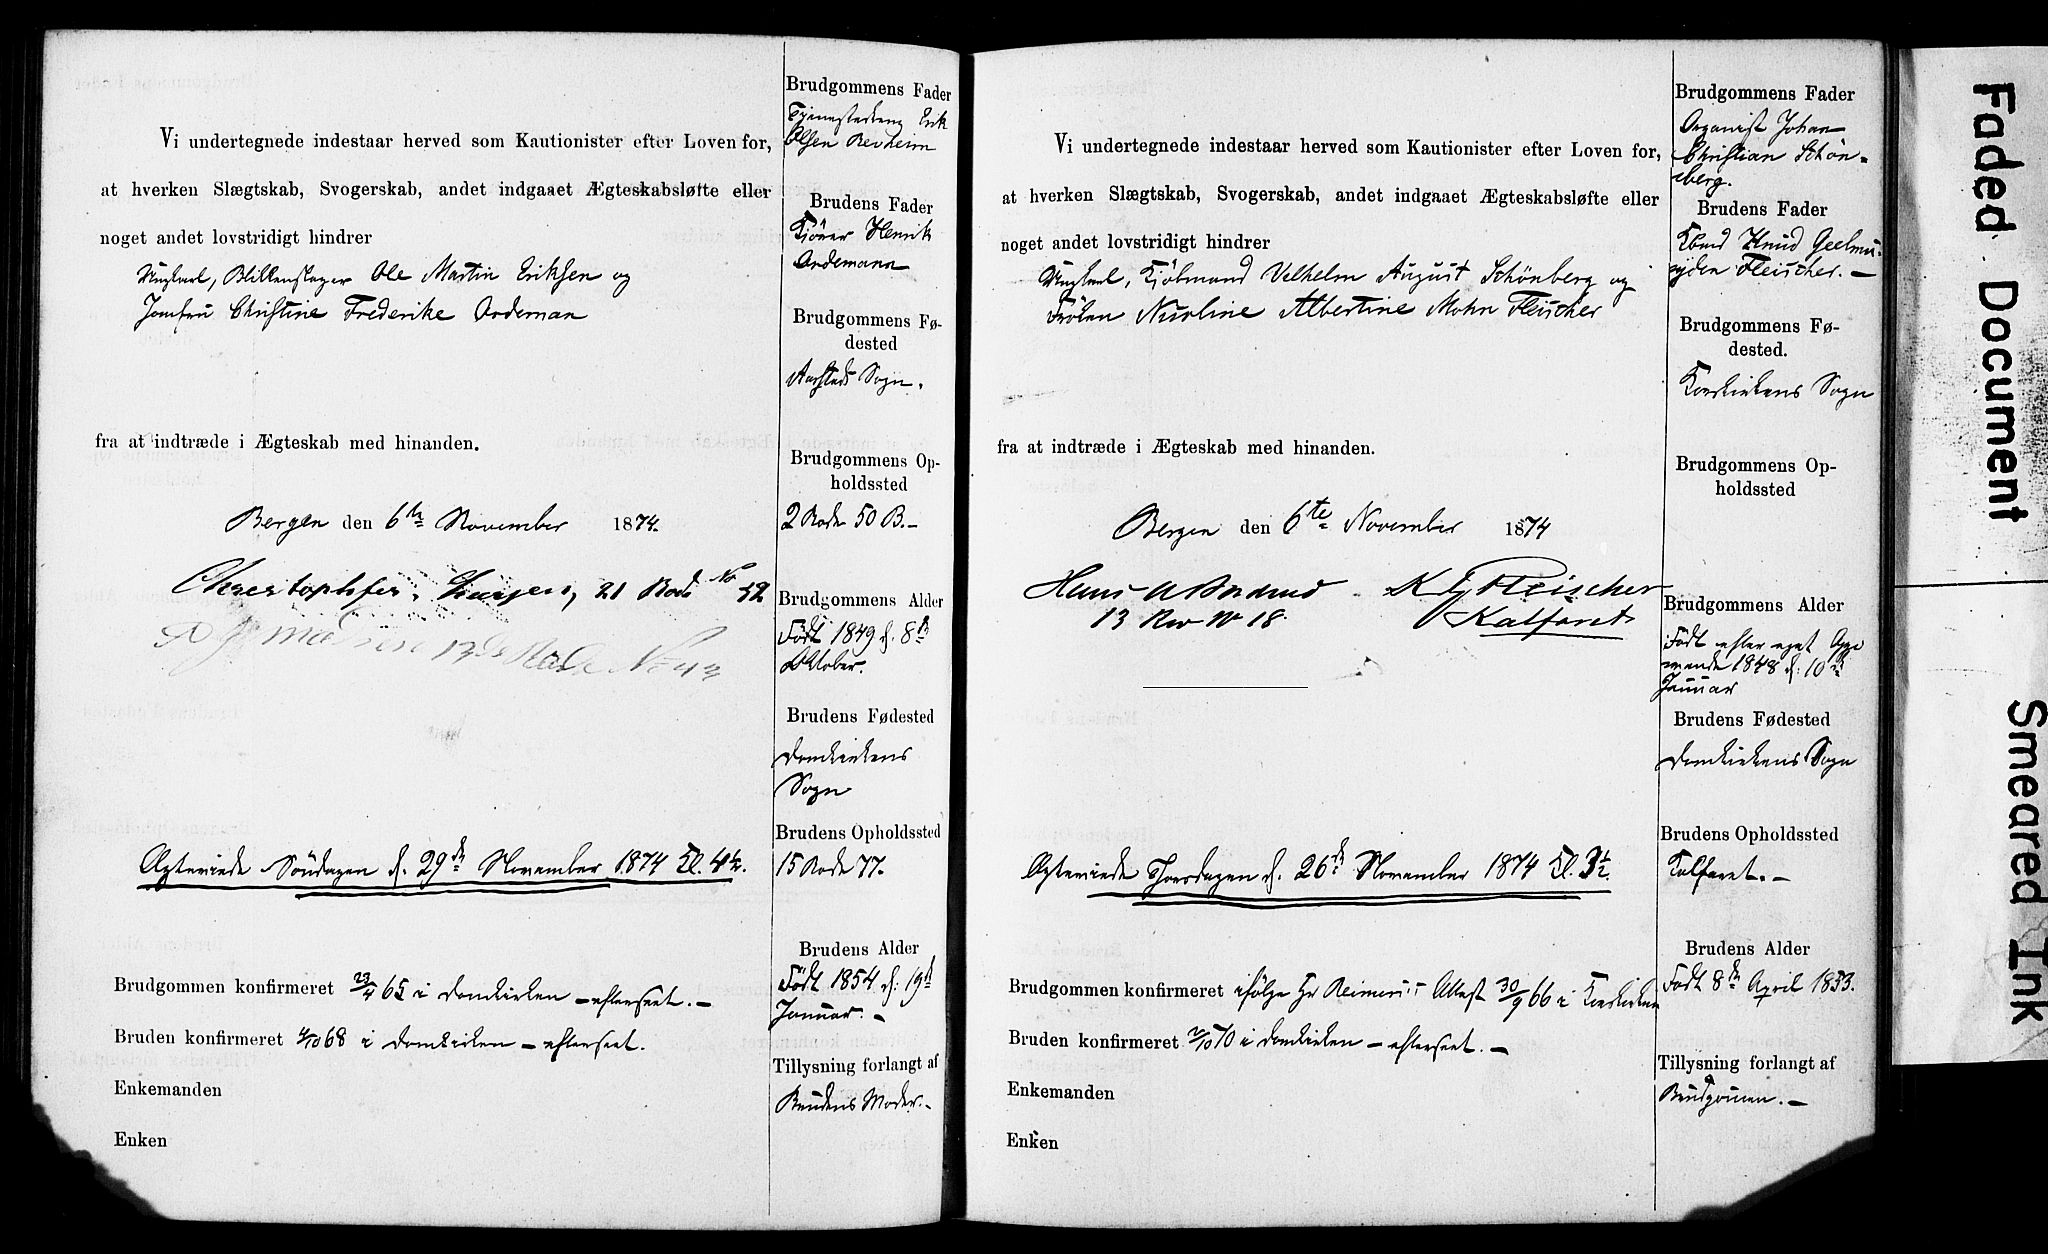 Vi undertegnede indestaar herved som Kautionister efter Loven for,
at hverken Slægtskab, Svogerskab, andet indgaaet Ægteskabsløfte eller
noget andet lovstridigt hindrer
Ungkarl, Blikkenslager Ole Martin Eriksen og
Jomfru Christine Frederike Ordeman
fra at indtræde i Ægteskab med hinanden.
Bergen den 6te November 1874.
Christopher 21 Rode No 52
13de Rode No 43
Agtevirede Söndagen d. 29de November 1874 Kl. 4½.
Brudgommen konfirmeret 23/4 65 i Domkirken – efterseet. –
Bruden konfirmeret 4/10 68 i Domkirken – efterseet.
Enkemanden
Enken
Brudgommens Fader
Erik
Olsen Revheim
Brudens Fader
Henrik
Ordemann
Brudgommens Fø-
dested
Aarstads Sogn.
Brudgommens Op-
holdssted
2 Rode 50 B. –
Brudgommens Alder
Födt 1849 d. 8de
Oktober.
Brudens Fødested
Domkirkens
Sogn
Brudens Opholdssted
15 Rode 77.
Brudens Alder
Födt 1854 d. 19de
Januar. –
Tillysning forlangt af
Brudens Moder. –
Vi undertegnede indestaar herved som Kautionister efter Loven for,
at hverken Slægtskab, Svogerskab, andet indgaaet Ægteskabsløfte eller
noget andet lovstridigt hindrer
Ungkarl, Kjöbmand Vilhelm August Schönberg og
Fröken Nicoline Albertine Mohn Fleischer
fra at indtræde i Ægteskab med hinanden.
Bergen den 6te November 1874
Hans K G Fleischer
13 Rode No 18. Kalfaret
Agtevirede Torsdagen d. 26de November 1874 Kl. 3½.
Brudgommen konfirmeret ifölge Hr Reimers's Attest 30/9 66 i Korskirken
Bruden konfirmeret 2/10 70 i Domkirken – efterseet. –
Enkemanden
Enken
Brudgommens Fader
Organist Johan
Christian Schön-
berg.
Brudens Fader
Kbmd Knud Geelmu-
yden Fleischer. –
Brudgommens Fø-
dested.
Korskirkens Sogn
Brudgommens Op-
holdssted
Brudgommens Alder
Födt efter eget Opgi
vende 1848 d. 10de
Januar
Brudens Fødested
Domkirkens Sogn
Brudens Opholdssted
Kalfaret. –
Brudens Alder
Födt 8de April 1853.
Tillysning forlangt af
Brudgommen. –
Faded Document
Smeared Ink